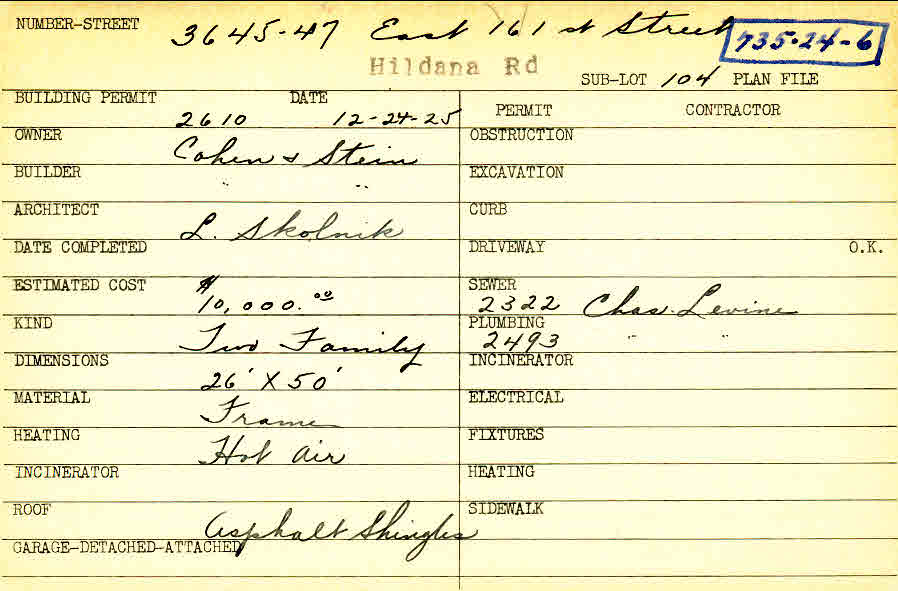 NUMBER-STREET 3645-47 East 161 st Street 735-24-6
Hildana Rd
SUB-LOT 104 PLAN FILE
BUILDING PERMIT DATE
2610 12-24-25
PERMIT CONTRACTOR
OWNER Cohen & Stein
OBSTRUCTION
BUILDER " "
EXCAVATION
ARCHITECT L. Skolnik
CURB
DATE COMPLETED
DRIVEWAY O.K.
ESTIMATED COST $10,000.00
SEWER
2322 Chas. Levine
KIND Two Family
PLUMBING
2493 " "
DIMENSIONS 26' X 50'
INCINERATOR
MATERIAL Frame
ELECTRICAL
HEATING Hot Air
FIXTURES
INCINERATOR
HEATING
ROOF Asphalt Shingles
SIDEWALK
GARAGE-DETACHED-ATTACHED